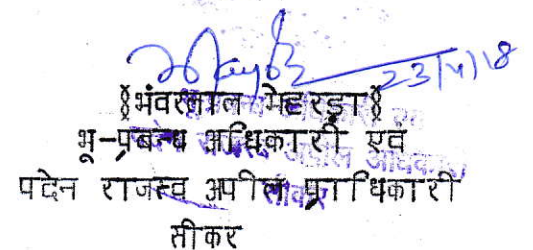 23/4/18
§भंवरलाल मेहरड़ा§
भू-प्रबन्ध अधिकारी एवं
पदेन राजस्व अपील प्राधिकारी
सीकर